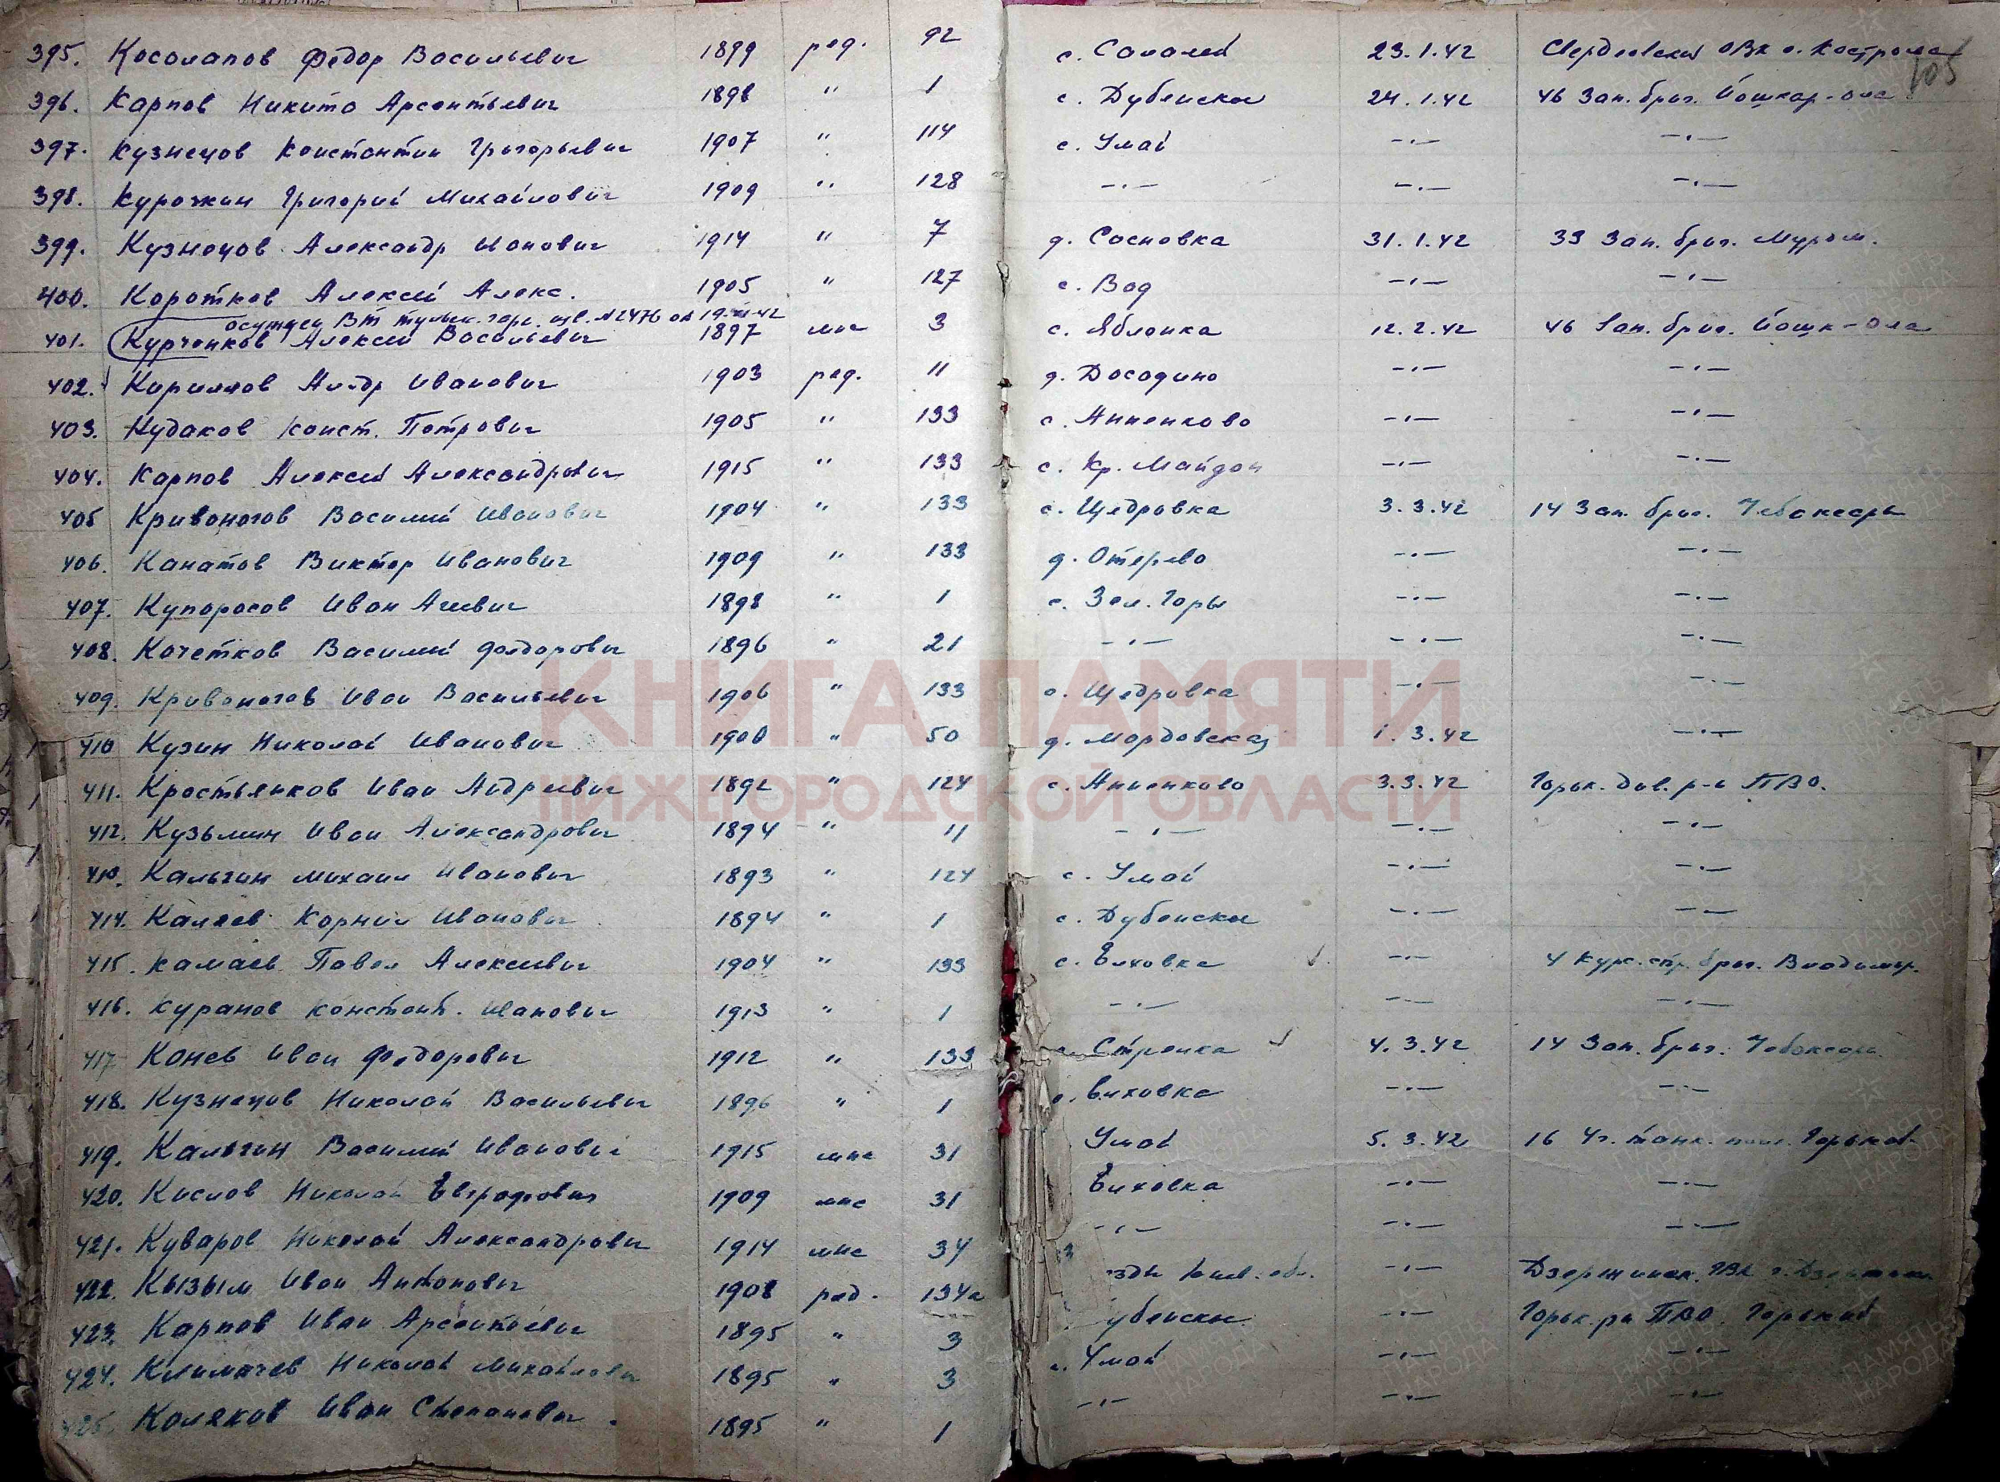 105
395. Косолапов Федор Васильевич 1899 ряд. 92 с. Салалей 23.1.42 Свердловский РВК г. Кострома
396. Карпов Никита Арсентьевич 1898 " 1 с. Дубенски 24.1.42 46 Зап. бриг. Йошкар-Ола
397. Кузнецов Константин Григорьевич 1907 " 114 с. Умай -"- -"-
398. Курочкин Григорий Михайлович 1909 " 128 -"- -"- -"-
399. Кузнецов Александр Иванович 1914 " 7 д. Сосновка 31.1.42 33 Зап. бриг. Муром.
400. Коротков Алексей Алекс. 1905 " 127 с. Вад -"- -"-
осужден ВТ гор. №2476 от 19. 42
401. Курченков Алексей Васильевич 1897 мнс 3 с. Яблонка 12.2.42 46 Зап. бриг. Йошк-Ола
402. Кириллов Ал-др Иванович 1903 ряд. 11 д. Досадино -"- -"-
403. Кудаков Конст. Петрович 1905 " 133 с. Анненково -"- -"-
404. Карпов Алексей Александрович 1915 " 133 с. Кр. Майдан -"- -"-
405 Кривоногов Василий Иванович 1904 " 133 с. Щедровка 3.3.42 14 Зап. бриг. Чебоксары
406. Канатов Виктор Иванович 1909 " 133 д. Отерево -"- -"-
407. Купоросов Иван Агеевич 1898 " 1 с. Зел. Горы -"- -"-
408. Кочетков Василий Федорович 1896 " 21 -"- -"- -"-
409. Кривоногов Иван Васильевич 1906 " 133 с. Щедровка -"- -"-
410 Кузин Николай Иванович 1900 " 50 д. Мордовская 1.3.42 -"-
411. Крестьянков Иван Андреевич 1892 " 124 с. Анненково 3.3.42 Горьк. див. р-н ПВО.
412. Кузьмин Иван Александрович 1894 " 11 -"- -"- -"-
413. Калыгин Михаил Иванович 1893 " 124 с. Умай -"- -"-
414. Каляев Корнил Иванович 1894 " 1 с. Дубенски -"- -"-
415. Камаев Павел Алексеевич 1904 " 133 с. Елховка -"- 4 Курс. стр. бриг. Владимир.
416. Куранов Констант. Иванович 1913 " 1 -"- -"- -"-
417 Конев Иван Федорович 1912 " 133 Стрелка 4.3.42 14 Зап. бриг. Чебоксары
418. Кузнецов Николай Васильевич 1896 " 1 Елховка -"- -"-
419. Калыгин Василий Иванович 1915 мнс 31 Умай 5.3.42 16 Уч. танк. полк. Горький
420. Кислов Николай Евграфович 1909 мнс 31 Елховка -"- -"-
421. Куваров Николай Александрович 1914 мнс 34 -"- -"- -"-
422. Кызым Иван Антонович 1908 ряд. 134а обл. -"- Дзержинск. РВК
423. Карпов Иван Арсентьевич 1895 " 3 убенски -"- Горьк. рн ПВО. Горький
424. Климачев Николай Михайлович 1895 " 3 с. Умай -"- -"-
425. Каляков Иван Степанович 1895 " 1 -"- -"- -"-
КНИГА ПАМЯТИ
НИЖЕГОРОДСКОЙ ОБЛАСТИ
ПАМЯТЬ НАРОДА